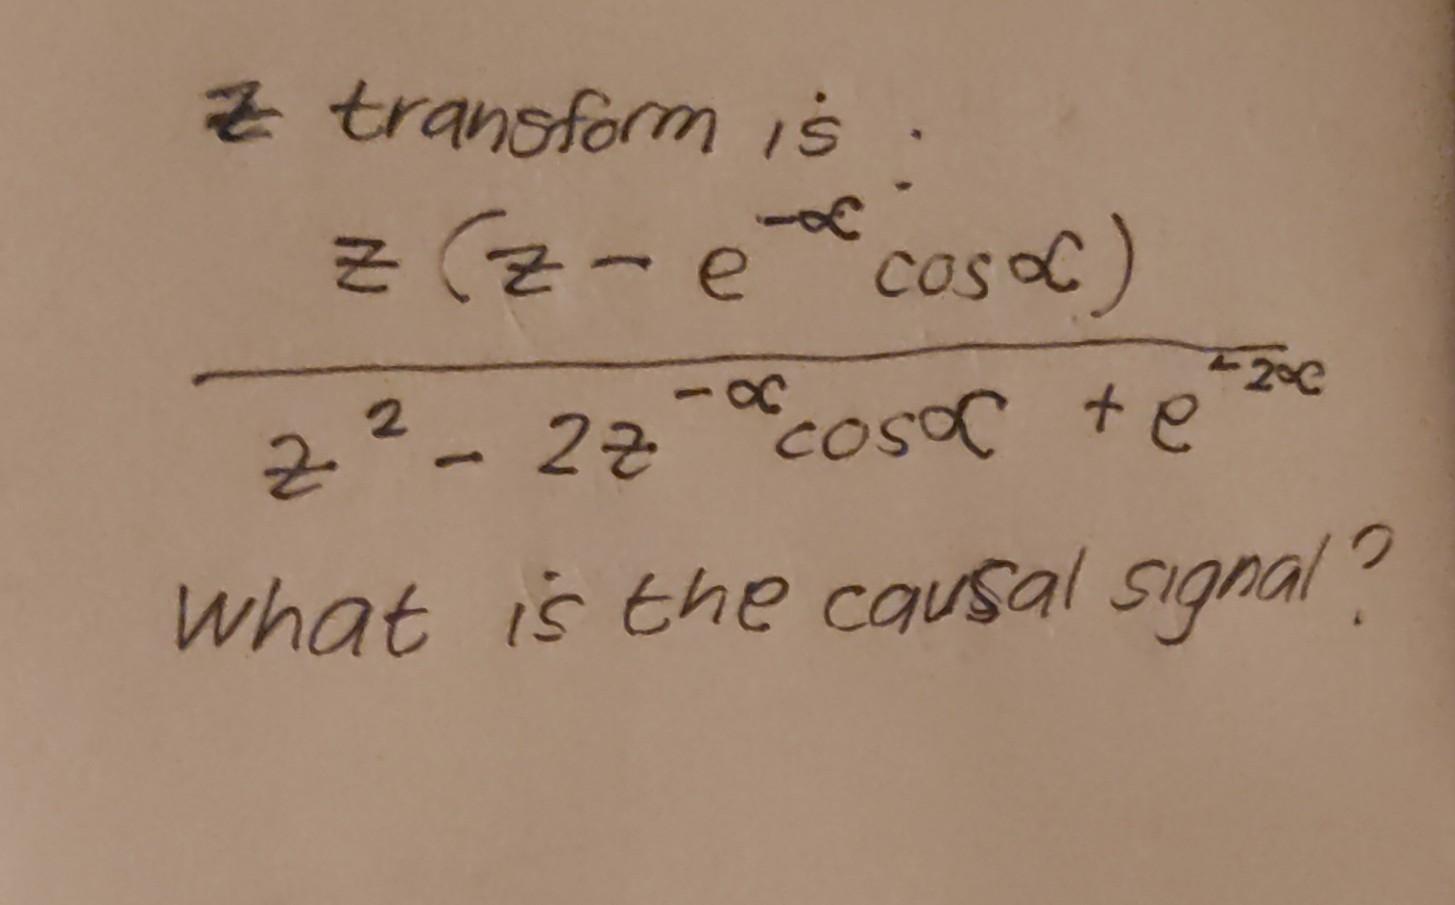 z transform is :
z (z - e^-α cosα)
z² - 2z^-α cosα + e^-2α
What is the causal signal?